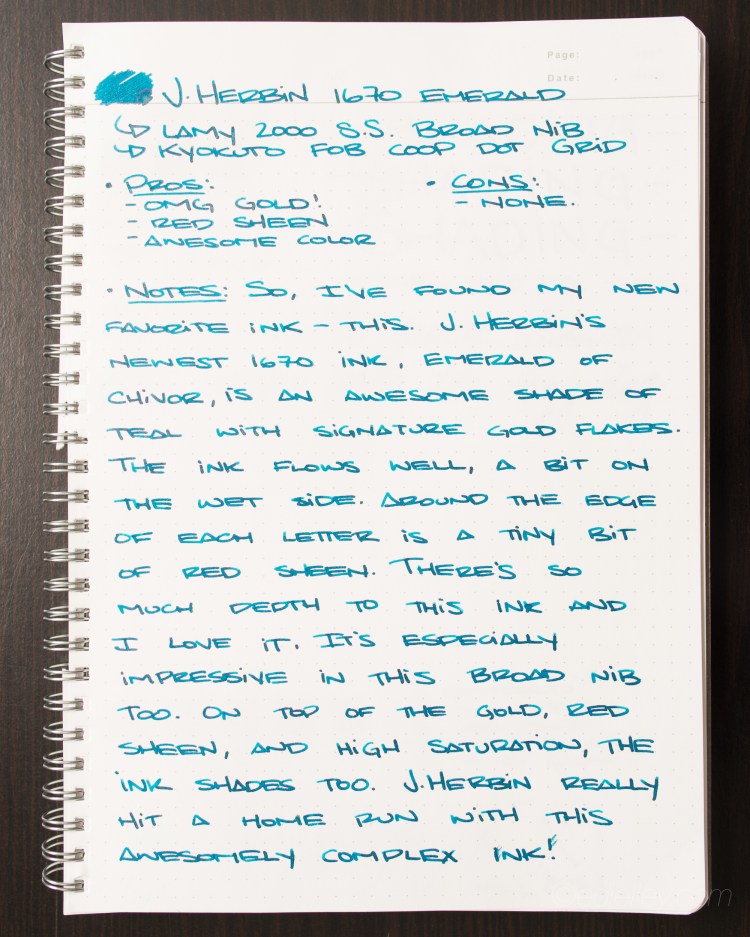 Page:
Date: . .
J. HERBIN 1670 EMERALD
↳ LAMY 2000 S.S. BROAD NIB
↳ KYOKUTO FOB COOP DOT GRID
• PROS:
- OMG GOLD!
- RED SHEEN
- AWESOME COLOR
• CONS:
- NONE.
• NOTES: SO, I'VE FOUND MY NEW
FAVORITE INK - THIS. J. HERBIN'S
NEWEST 1670 INK, EMERALD OF
CHIVOR, IS AN AWESOME SHADE OF
TEAL WITH SIGNATURE GOLD FLAKES.
THE INK FLOWS WELL, A BIT ON
THE WET SIDE. AROUND THE EDGE
OF EACH LETTER IS A TINY BIT
OF RED SHEEN. THERE'S SO
MUCH DEPTH TO THIS INK AND
I LOVE IT. IT'S ESPECIALLY
IMPRESSIVE IN THIS BROAD NIB
TOO. ON TOP OF THE GOLD, RED
SHEEN, AND HIGH SATURATION, THE
INK SHADES TOO. J. HERBIN REALLY
HIT A HOME RUN WITH THIS
AWESOMELY COMPLEX INK!